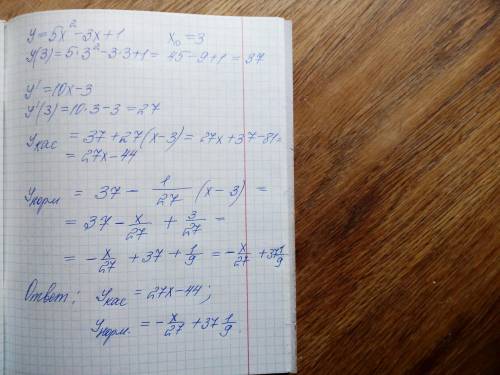 y = 5x² - 3x + 1    x₀ = 3
y(3) = 5·3² - 3·3 + 1 = 45 - 9 + 1 = 37
y' = 10x - 3
y'(3) = 10·3 - 3 = 27
Yкас = 37 + 27(x - 3) = 27x + 37 - 81 =
= 27x - 44
Yнорм = 37 - 1/27 (x - 3) =
= 37 - x/27 + 3/27 =
= - x/27 + 37 + 1/9 = - x/27 + 37 1/9
Ответ: Yкас = 27x - 44;
Yнорм. = - x/27 + 37 1/9.